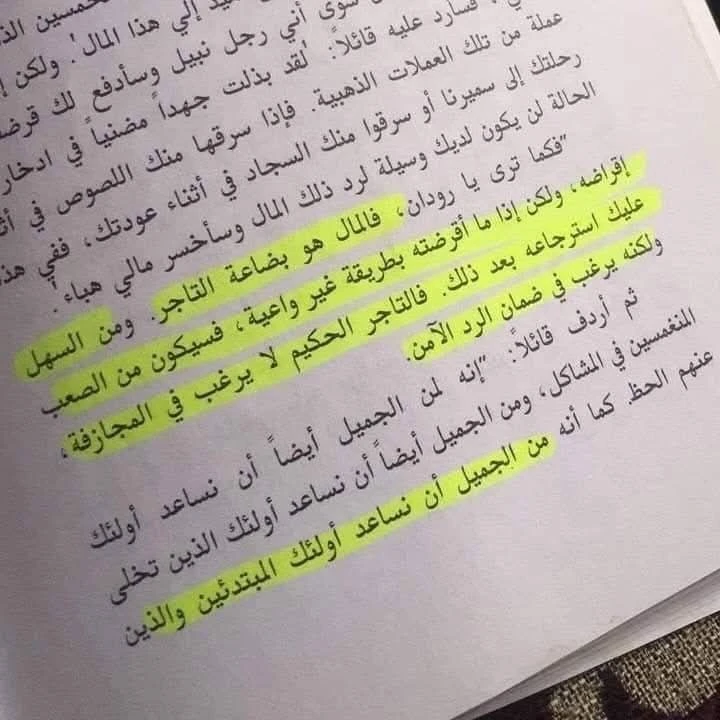 خمسين الذ
إلي هذا المال'. ولكن
سوى أني رجل نبيل وسأدفع لك
فسارد عليه قائلاً: 'لقد بذلت جهداً مضنياً في ادخار
عملة من تلك العملات الذهبية. فإذا سرقها منك اللصوص في أث
رحلتك إلى سميرنا أو سرقوا منك السجاد في أثناء عودتك، ففي هذ
الحالة لن يكون لديك وسيلة لرد ذلك المال وسأخسر مالي هباء'.
"فكما ترى يا رودان، فالمال هو بضاعة التاجر. ومن السهل
إقراضه، ولكن إذا ما أقرضته بطريقة غير واعية، فسيكون من الصعب
عليك استرجاعه بعد ذلك. فالتاجر الحكيم لا يرغب في المجازفة،
ولكنه يرغب في ضمان الرد الآمن.
ثم أردف قائلاً: "إنه لمن الجميل أيضاً أن نساعد أولئك
المنغمسين في المشاكل، ومن الجميل أيضاً أن نساعد أولئك الذين تخلى
عنهم الحظ. كما أنه من الجميل أن نساعد أولئك المبتدئين والذين